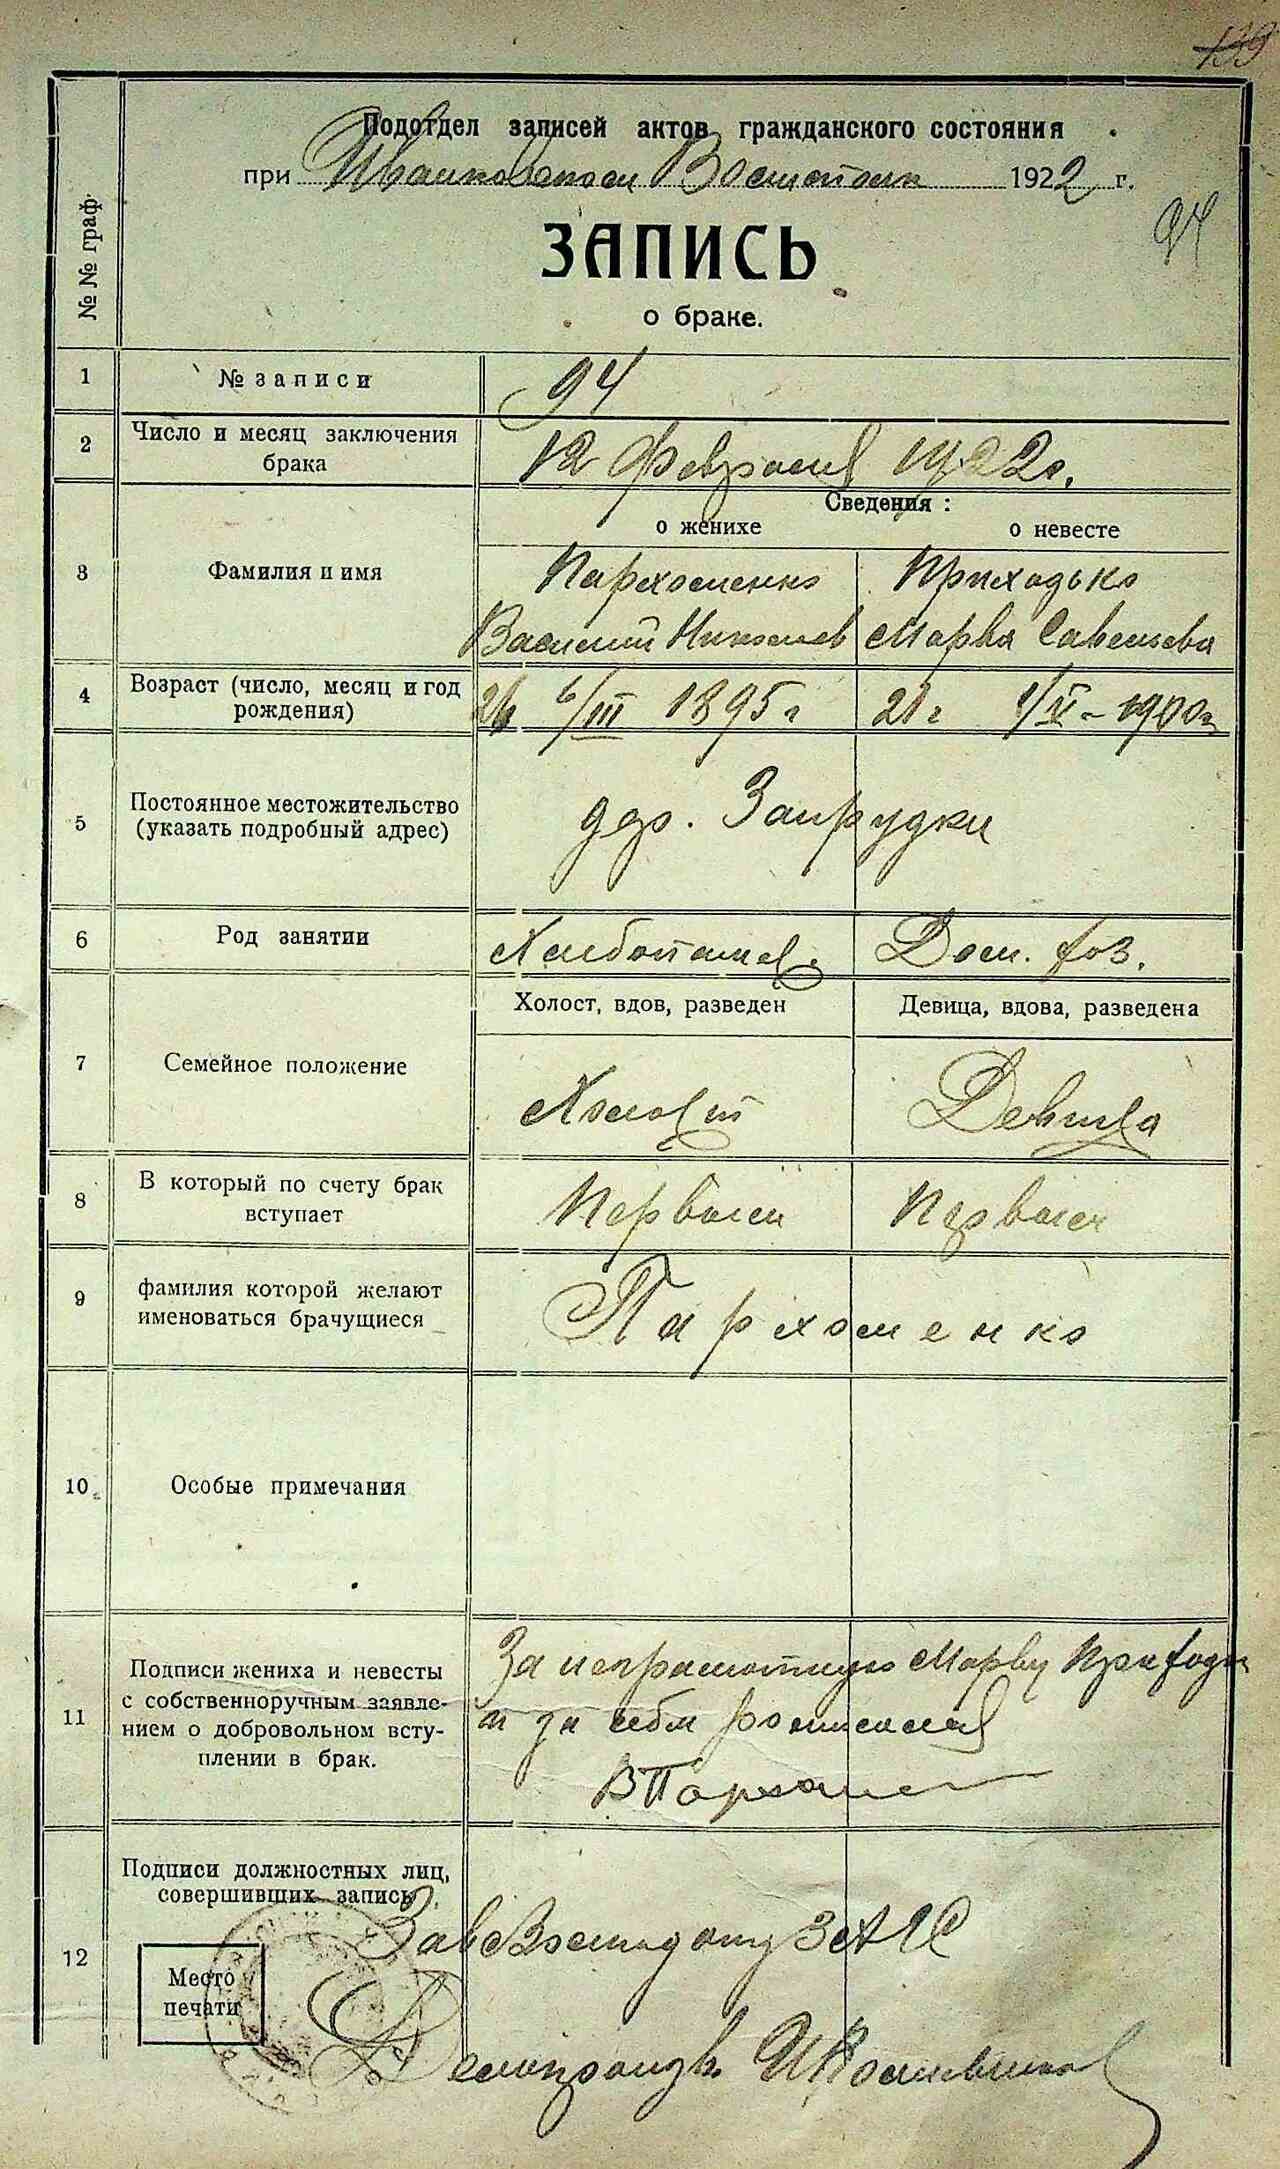 139
Подотдел записей актов гражданского состояния
при Иванковском Волисполк 1922 г.
94
№№ граф
ЗАПИСЬ
о браке.
1 № записи 94
2 Число и месяц заключения брака 12 февраля 1922 г.
Сведения:
о женихе о невесте
3 Фамилия и имя Пархоменко Приходько
Василий Николаев Марва Савельева
4 Возраст (число, месяц и год рождения) 26 6/III 1895 г 21 г 1/V - 1900 г
5 Постоянное местожительство (указать подробный адрес) дер. Запрудки
6 Род занятии Хлебопашец. Дом. хоз.
Холост, вдов, разведен Девица, вдова, разведена
7 Семейное положение Холост Девица
8 В который по счету брак вступает Первый Первый
9 фамилия которой желают именоваться брачущиеся Пархоменко
10 Особые примечания
11 Подписи жениха и невесты с собственноручным заявлением о добровольном вступлении в брак.
За неграмотную Марву Приходь
и за себя росписался
В Пархоме
12 Подписи должностных лиц, совершивших запись.
Зав ЗАГС
Место печати
Делопроизв.